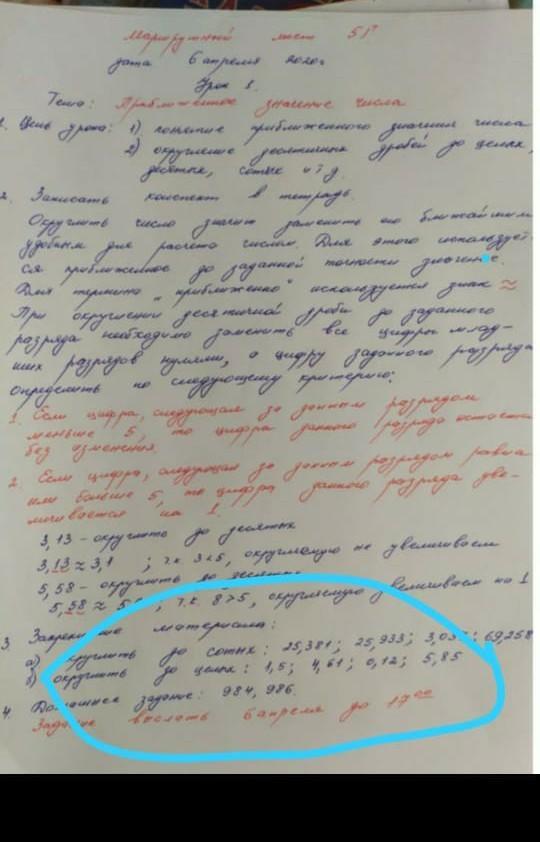 Маршрутный лист 5 1"
дата 6 апреля 2020г
Урок 1.
Тема: Приближенное значение числа
1. Цель урока: 1) понятие приближенного значения числа
2) округление десятичных дробей до целых,
десятых, сотых и т д.
2. Записать конспект в тетрадь.
Округлить число значит заменить его ближайшим
удобным для расчета числом. Для этого использует-
ся приближенное до заданной точности значение.
Для термина "приближенно" используется знак ≈
При округлении десятичной дроби до заданного
разряда необходимо заменить все цифры млад-
ших разрядов нулями, а цифру заданного разряда
определить по следующему критерию:
1. Если цифра, следующая за данным разрядом
меньше 5, то цифра данного разряда остается
без изменения.
2. Если цифра, следующая за данным разрядом равна
или больше 5, то цифра данного разряда уве-
личивается на 1.
3,13 - округлить до десятых
3,13 ≈ 3,1 ; т.к. 3<5, округляемую не увеличиваем
5,58 - округлить до десятых
5,58 ≈ ; т.к. 8>5, округляемую увеличиваем на 1
3. материала:
а) округлить до сотых: 25,381; 25,933; 69,258
б) округлить до целых: 1,5; 4,61; 0,12; 5,85
4. Домашнее задание: 984, 986.
Задание выслать 6 апреля до 17 00